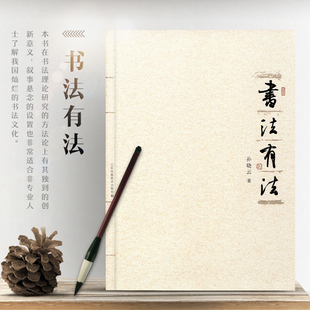 书法有法
本书在书法理论研究的方法论上有其独到的创
新意义，叙事悬念的设置也非常适合非专业人
士了解我国灿烂的书法文化。
書法有法
孙晓云 著